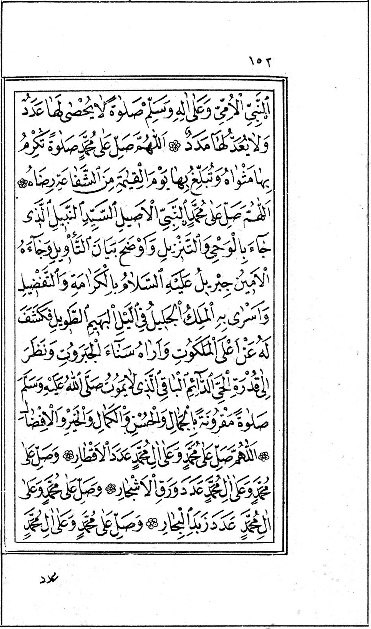 ١٥٢
اَلنَّبِيِّ الْاُمِّيِّ وَعَلٰى اٰلِهٖ وَسَلِّمْ صَلٰوةً لَا يُحْصٰى لَهَا عَدَدٌ
وَلَا يُعَدُّ لَهَا مَدَدٌ ۞ اَللّٰهُمَّ صَلِّ عَلٰى مُحَمَّدٍ صَلٰوةً تُكْرِمُ
بِهَا مَثْوَاهُ وَتُبَلِّغُ بِهَا يَوْمَ الْقِيٰمَةِ مِنَ الشَّفَاعَةِ رِضَاهُ ۞
اَللّٰهُمَّ صَلِّ عَلٰى مُحَمَّدٍ النَّبِيِّ الْاَصِيْلِ السَّيِّدِ النَّبِيْلِ الَّذِيْ
جَآءَ بِالْوَحْيِ وَالتَّنْزِيْلِ وَاَوْضَحَ بَيَانَ التَّأْوِيْلِ وَجَآءَهُ
الْاَمِيْنُ جِبْرِيْلُ عَلَيْهِ السَّلَامُ بِالْكَرَامَةِ وَالتَّفْضِيْلِ
وَاَسْرٰى بِهِ الْمَلِكُ الْجَلِيْلُ فِي اللَّيْلِ الْبَهِيْمِ الطَّوِيْلِ فَكَشَفَ
لَهٗ عَنْ اَعْلَى الْمَلَكُوْتِ وَاَرَاهُ سَنَآءَ الْجَبَرُوْتِ وَنَظَرَ
اِلٰى قُدْرَةِ الْحَيِّ الدَّآئِمِ الْبَاقِي الَّذِيْ لَا يَمُوْتُ صَلَّى اللّٰهُ عَلَيْهِ وَسَلَّمَ
صَلٰوةً مَقْرُوْنَةً بِالْجَمَالِ وَالْحُسْنِ وَالْكَمَالِ وَالْخَيْرِ وَالْاِفْضَالِ
۞ اَللّٰهُمَّ صَلِّ عَلٰى مُحَمَّدٍ وَعَلٰى اٰلِ مُحَمَّدٍ عَدَدَ الْاَقْطَارِ ۞ وَصَلِّ عَلٰى
مُحَمَّدٍ وَعَلٰى اٰلِ مُحَمَّدٍ عَدَدَ وَرَقِ الْاَشْجَارِ ۞ وَصَلِّ عَلٰى مُحَمَّدٍ وَعَلٰى
اٰلِ مُحَمَّدٍ عَدَدَ زَبَدِ الْبِحَارِ ۞ وَصَلِّ عَلٰى مُحَمَّدٍ وَعَلٰى اٰلِ مُحَمَّدٍ
عدد